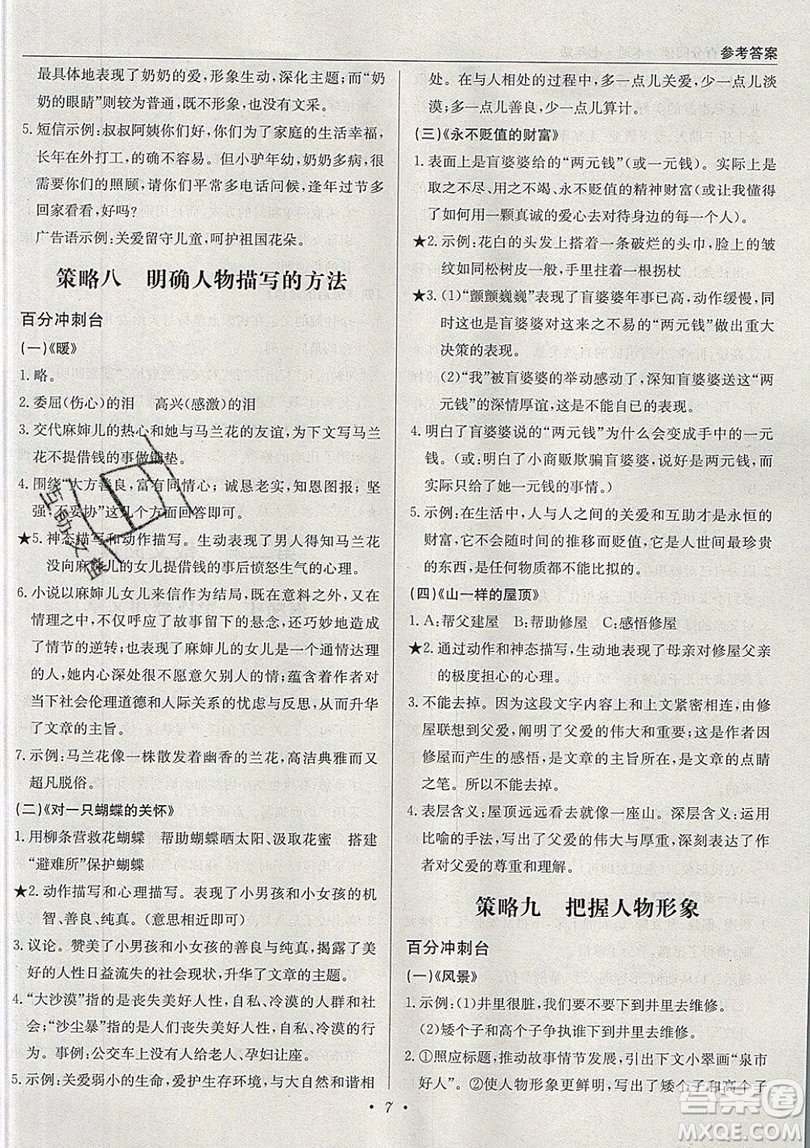 参考答案
最具体地表现了奶奶的爱，形象生动，深化主题；而“奶
奶的眼睛”则较为普通，既不形象，也没有文采。
5. 短信示例：叔叔阿姨你们好，你们为了家庭的生活幸福，
长年在外打工，的确不容易。但小驴年幼，奶奶多病，需
要你们的照顾，请你们常常多电话问候，逢年过节多
回家看看，好吗？
广告语示例：关爱留守儿童，呵护祖国花朵。
策略八 明确人物描写的方法
百分冲刺台
(一)《暖》
1. 略。
2. 委屈(伤心)的泪 高兴(感激)的泪
3. 交代麻婶儿的热心和她与马兰花的友谊，为下文写马兰
花不提借钱的事做铺垫。
4. 围绕“大方善良，富有同情心；诚恳老实，知恩图报；坚
强、妥协”这几个方面回答即可。
★5. 神态描写和动作描写。表现了男人得知马兰花
没向麻婶儿的女儿提借钱的事后愤怒生气的心理。
6. 小说以麻婶儿女儿来信作为结尾，既在意料之外，又在
情理之中，不仅呼应了故事留下的悬念，还巧妙地完成
了情节的逆转；也表现了麻婶儿的女儿是一个通情达理
的人，她内心深处不愿意欠人情，从中可以看出作者对
当下社会伦理道德和人际关系的忧虑与反思，从而升华
了文章的主旨。
7. 示例：马兰花像一株散发着幽香的兰花，高洁典雅而又
超凡脱俗。
(二)《对一只蝴蝶的关怀》
1. 用柳条营救花蝴蝶 帮助蝴蝶晒太阳、汲取花蜜 搭建
“避难所”保护蝴蝶
★2. 动作描写和心理描写。表现了小男孩和小女孩的机
智、善良、纯真。(意思相近即可)
3. 议论。赞美了小男孩和小女孩的善良与纯真，揭露了美
好人性日益流失的社会现实，升华了文章的主题。
4. “大沙漠”指的是丧失美好人性，自私、冷漠的人群和社
会；“沙尘暴”指的是丧失美好人性，自私、冷漠的行为
和事件。事例：公交车上没有人给老人、孕妇让座。
5. 示例：关爱弱小的生命，爱护生存环境，与大自然和谐相
处。在与人相处的过程中，多一点儿关爱，少一点儿淡
漠；多一点儿善良，少一点儿算计。
(三)《永不贬值的财富》
1. 表面上是盲婆婆给的“两元钱”(或一元钱)。实际上是
取之不尽、用之不竭、永不贬值的精神财富(或让我懂得
了如何用一颗真诚的爱心去对待身边的每一个人)。
★2. 示例：花白的头发上搭着一条破烂的头巾，脸上的皱
纹如同松树皮一样，手里拄着一根拐杖
★3. (1)“颤颤巍巍”表现了盲婆婆年事已高，动作缓慢，同
时这也是盲婆婆对来之不易的“两元钱”做出重大
决策的表现。
(2)“我”被盲婆婆的举动感动了，深知盲婆婆送这“两
元钱”的深情厚谊，这是不能自已的表现。
4. 明白了盲婆婆说的“两元钱”为什么会变成手中的一元
钱。(或：明白了小商贩欺骗盲婆婆，说给了她两元钱，
而实际只给了她一元钱的事情。)
5. 示例：在生活中，人与人之间的关爱和互助才是永恒的
财富，它不会随着时间的推移而贬值，它是世间最珍贵
的东西，是任何物质都不能比拟的。
(四)《山一样的屋顶》
1. A：帮父建屋 B：帮助修屋 C：感悟修屋
★2. 通过动作描写和神态描写，生动地表现了母亲对修屋父亲
的极度关心、担忧的心理。
3. 不能去掉。因为这段文字内容上和上文紧密相连，由修
屋联想到父爱，阐明了父爱的伟大和重要；这是作者由
修屋而产生的感悟，揭示了文章的主旨，起到画龙点睛
的作用。
4. 表层含义：屋顶远远看去就像一座山。深层含义：运用
比喻的手法，写出了父爱的伟大与厚重，深刻表达了作者
对父爱的尊重和理解。
策略九 把握人物形象
百分冲刺台
(一)《风景》
1. 示例：(1)井里很脏，我们要不要到井里去维修。
(2)矮个子和高个子争执谁下到井里去维修。
2. ①照应标题，推动故事情节发展，引出下文小翠画“泉市
好人”。②使人物形象更鲜明，写出了矮个子和高个子
· 7 ·
互动文香
答案圈
MXQE.COM